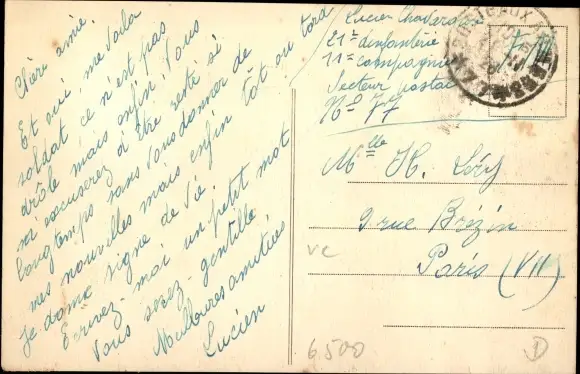 Chère amie.
Et oui, me voila
soldat ce n'est pas
drôle mais enfin. Vous
m'excuserez d'être resté si
longtemps sans vous donner de
mes nouvelles mais enfin tôt ou tard
je donne signe de vie.
Ecrivez-moi un petit mot
vous serez gentille
Meilleures amitiés
Lucien
Lucien
21e d'infanterie
11e compagnie
Secteur postal
No 77
F M
Mlle H. Lévy
9 rue Brézin
Paris (VII)
vc
6500
D